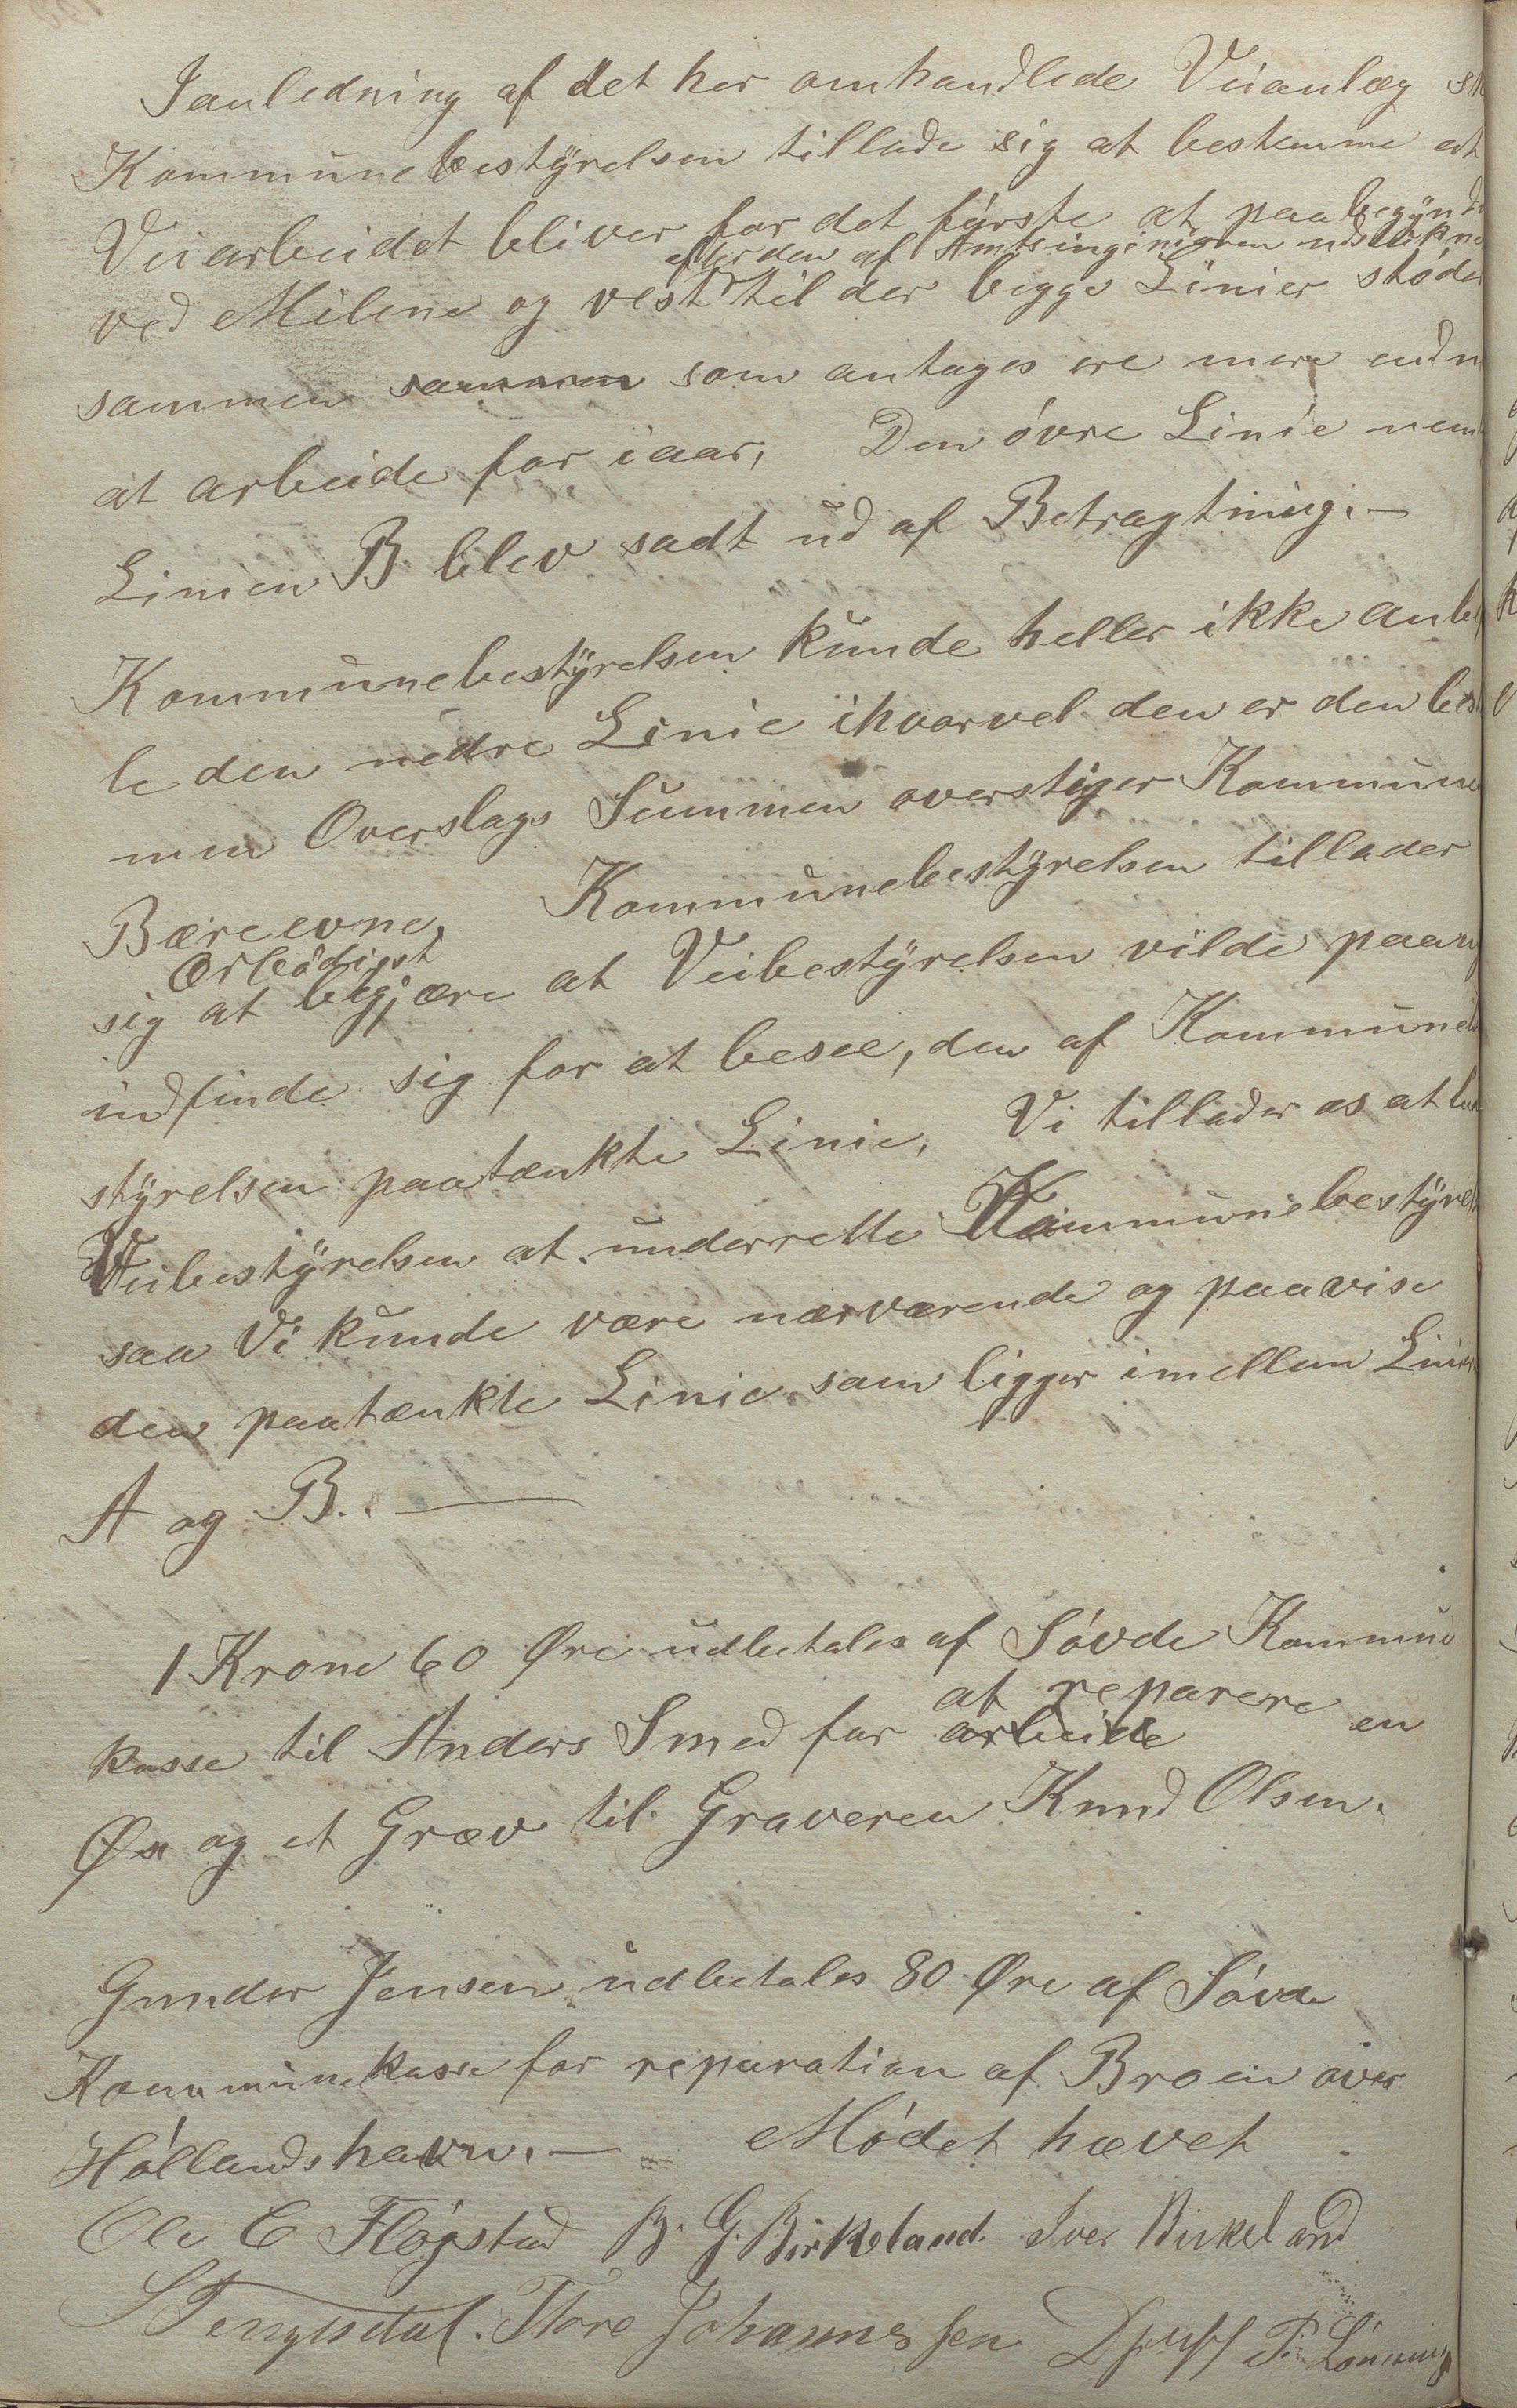 Ianledning af det her omhandlede Veianlæg
Kommunebestÿrelsen tillade sig at bestemme at
Veiarbeidet bliver for det förste at paabegÿnde
efter den af Amtsingeniøren udstikne
ved Milene og vest til der begge Linier stöder
sammen sammen som antages ere mere end n
at arbeide for iaar, Den óvre Linie nem
Linien B blev sadt ud af Betragtning. —
Kommunebestÿrelsen kunde heller ikke anbe
le den nedre Linie ihvorvel den er den bes
men Overslags Summen overstiger Kommune
Bæreevne, Kommunebestÿrelsen tillader
ørbödigst
sig at begjære at Veibestÿrelsen vilde
indfinde sig for at besee, den af Kommune
stÿrelsen paatænkte Linie, Vi tillader os at
Veibestÿrelsen at underrette Kommunebestÿrel
saa Vi kunde være nærværende og paavise
den paatænkte Linie som ligger imellem Linie
A og B. —
1 Krone 60 Øre udbetales af Sóvde Kommune
at reparere
kasse til Anders Smed for arbeide en
Øx og et Græv til Graveren Knud Olsen.
Gunder Jensen udbetales 80 Øre af Sóvde
Kommunekasse for reparation af Broen over
Hóllandshavn. — Módet hævet
Ole C Flógstad B. G. Birkeland. Iver Birkeland
Tore Johannessen P. Lónning